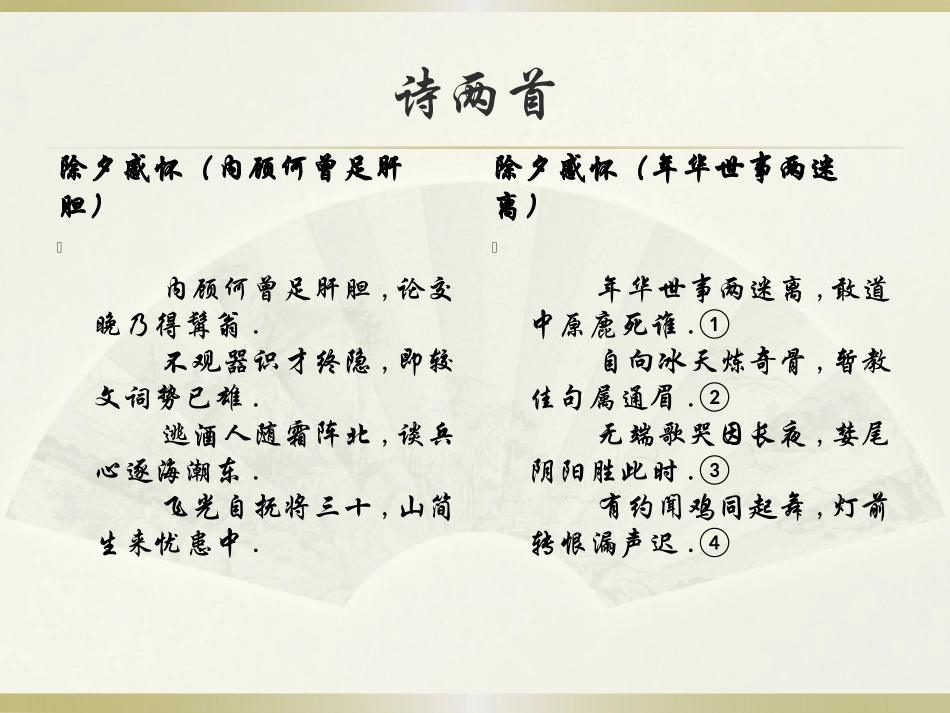 诗两首
除夕感怀（内顾何曾足肝
胆）
内顾何曾足肝胆,论交
晚乃得髯翁.
不观器识才终隐,即较
文词势已雄.
逃酒人随霜阵北,谈兵
心逐海潮东.
飞光自抚将三十,山简
生来忧患中.
除夕感怀（年华世事两迷
离）
年华世事两迷离,敢道
中原鹿死谁.①
自向冰天炼奇骨,暂教
佳句属通眉.②
无端歌哭因长夜,婪尾
阴阳胜此时.③
有约闻鸡同起舞,灯前
转恨漏声迟.④